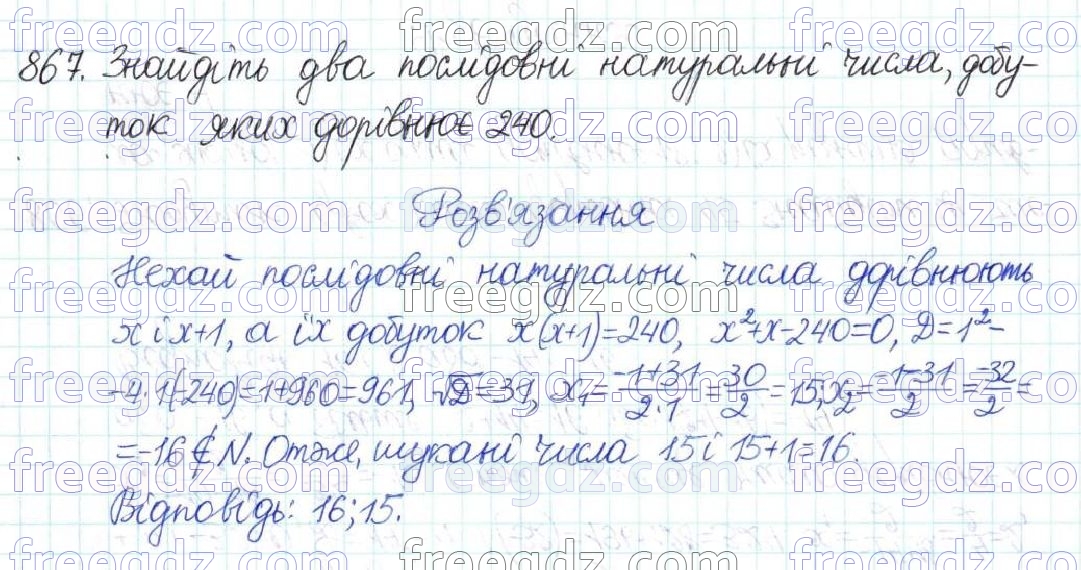 867. Знайдіть два послідовні натуральні числа, добу-
ток яких дорівнює 240.
Розв'язання
Нехай послідовні натуральні числа дорівнюють
x і x+1, а їх добуток x(x+1)=240, x²+x-240=0, D=1²-
-4·1(-240)=1+960=961, √D=31, x₁=(-1+31)/(2·1)=30/2=15; x₂=(-1-31)/2=-32/2=
=-16∉N. Отже, шукані числа 15 і 15+1=16.
Відповідь: 16; 15.
freegdz.com